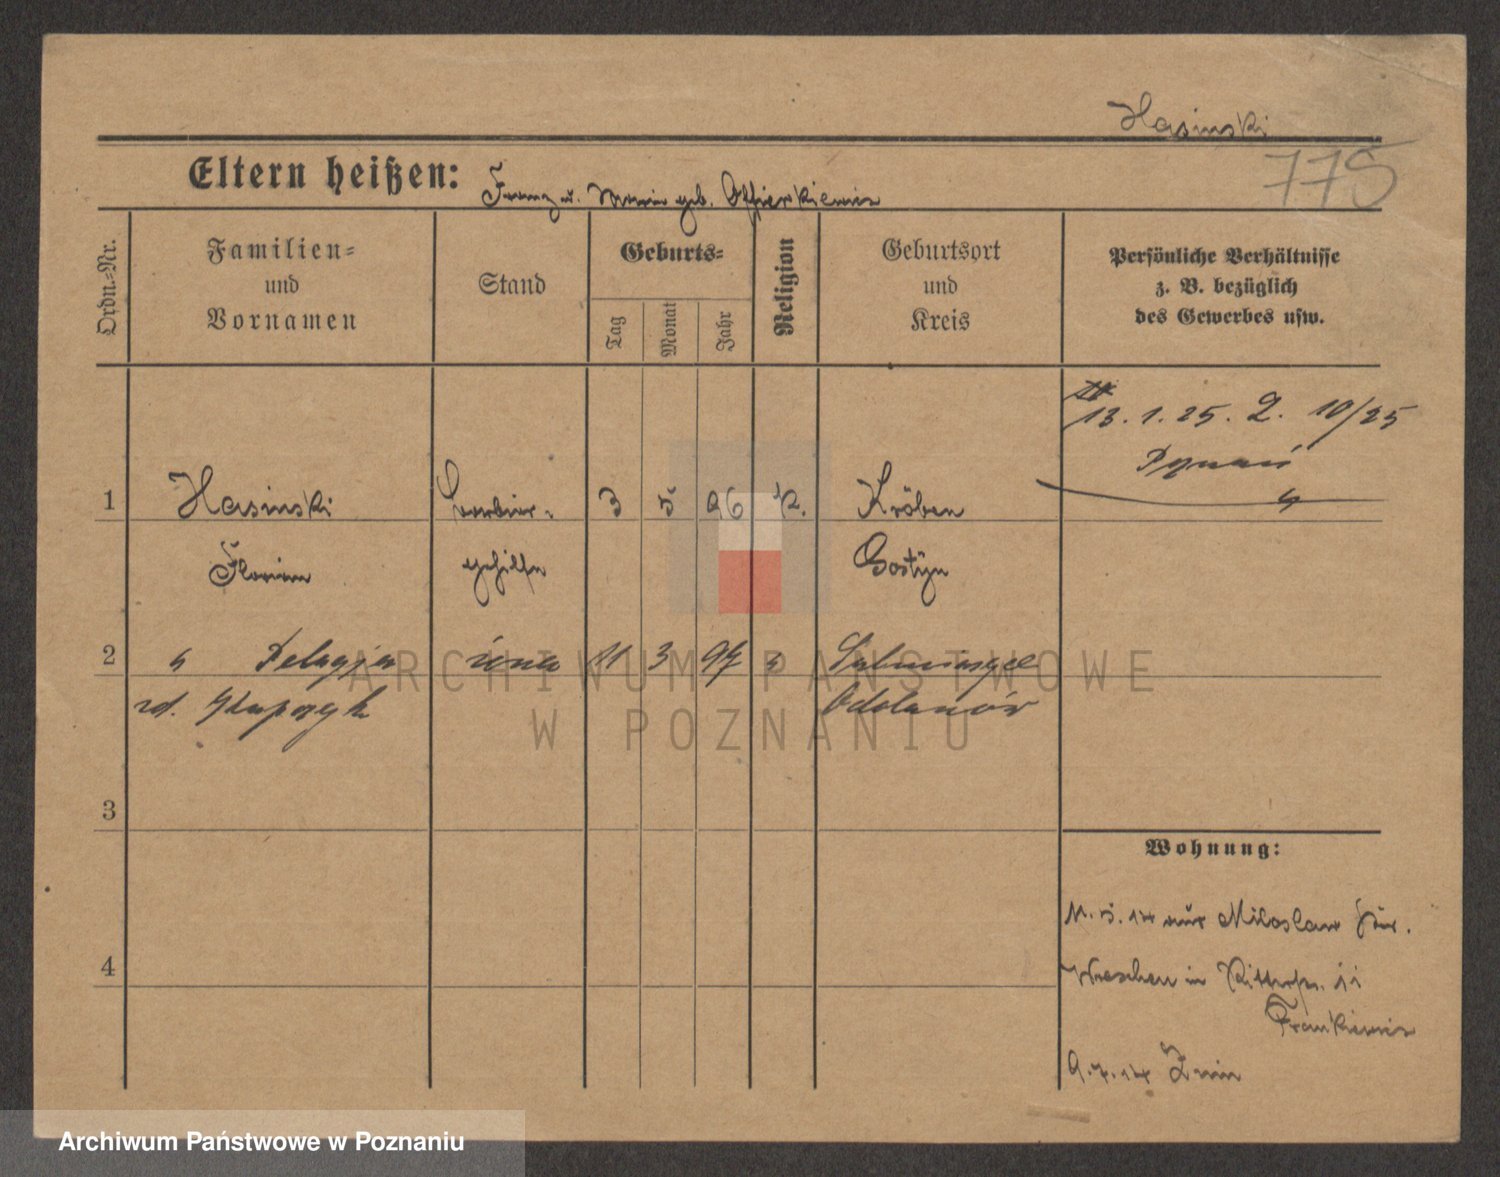 Hasinski
775
Eltern heißen: Franz u. Maria geb.
Ordn.=Nr.
Familien=
und
Vornamen
Stand
Geburts=
Tag
Monat
Jahr
Religion
Geburtsort
und
Kreis
Persönliche Verhältnisse
z. B. bezüglich
des Gewerbes usw.
13. 1. 25. 2. 10/25
Poznań
1 Hasinski Barbier- 3 5. 96 k. Kröben
Florian gehilfe Gostyn
2 " Pelagja żona 11 3 97 "
Odolanów
3
4
Wohnung:
11. 5. 14 aus Miloslaw Kr.
Wreschen in Ritterstr. 11
Frankiewicz
9. 7. 14 Znin
ARCHIWUM PAŃSTWOWE
W POZNANIU
Archiwum Państwowe w Poznaniu